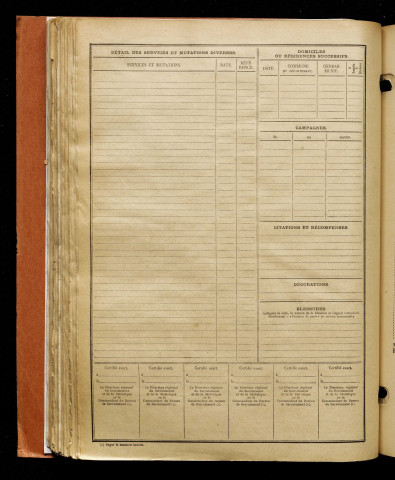 DÉTAIL DES SERVICES ET MUTATIONS DIVERSES.
SERVICES ET MUTATIONS.
DATE.
DOMICILES
OU RÉSIDENCES SUCCESSIFS.
DATE.
COMMUNE
CAMPAGNES.
CITATIONS ET RÉCOMPENSES.
DÉCORATIONS.
BLESSURES
Certifié exact. Certifié exact. Certifié exact. Certifié exact. Certifié exact. Certifié exact.
A A A A A A
Le Directeur régional Le Directeur régional Le Directeur régional Le Directeur régional Le Directeur régional Le Directeur régional
du Recrutement du Recrutement du Recrutement du Recrutement du Recrutement du Recrutement
et de la Statistique et de la Statistique et de la Statistique et de la Statistique et de la Statistique et de la Statistique
ou le ou le ou le ou le ou le ou le
Commandant du Bureau Commandant du Bureau Commandant du Bureau Commandant du Bureau Commandant du Bureau Commandant du Bureau
de Recrutement (1). de Recrutement (1). de Recrutement (1). de Recrutement (1). de Recrutement (1). de Recrutement (1).
(1) Rayer la mention inutile.